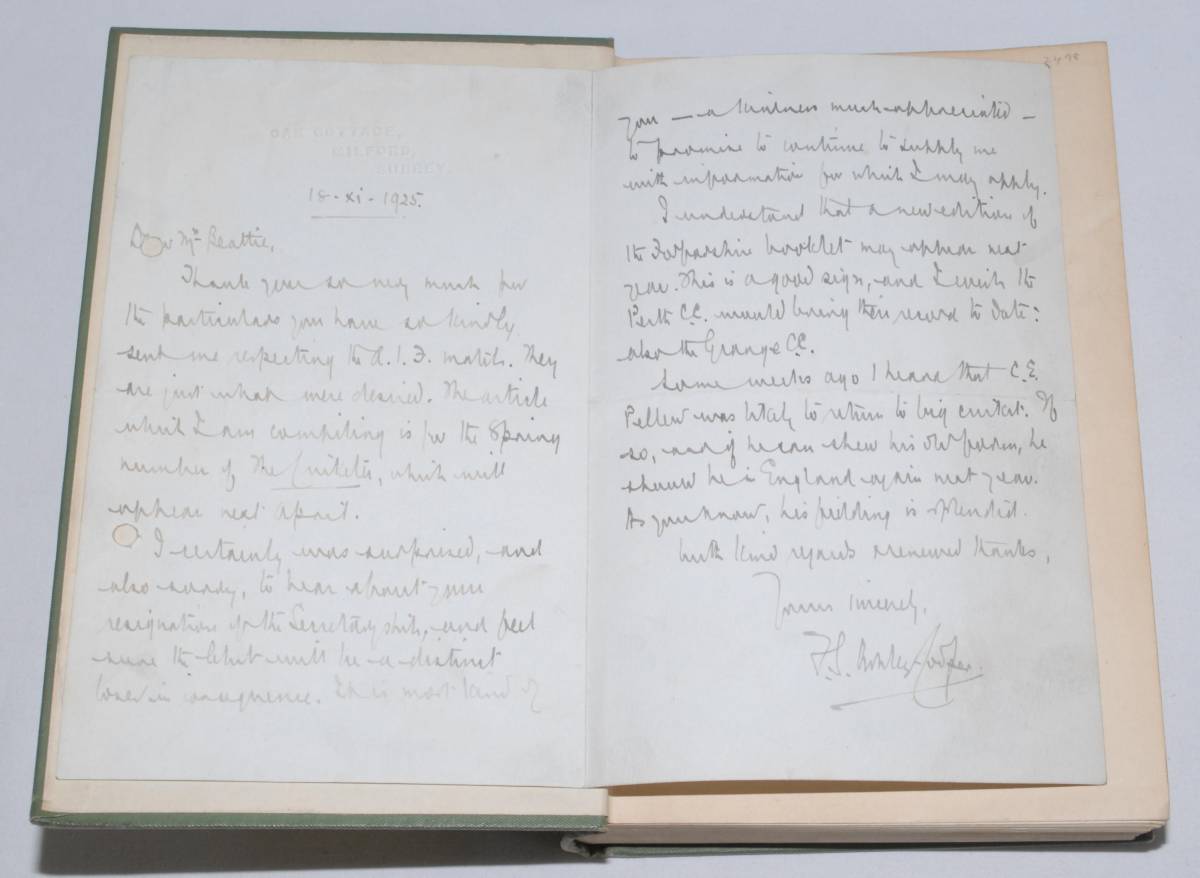 OAK COTTAGE,
MILFORD,
SURREY.
18 - xi - 1925.
Dear Mr Beattie,
Thank you so very much for
the particulars you have so kindly
sent me respecting the A.I.F. match. They
are just what were desired. The article
which I am compiling is for the Spring
number of The Cricketer, which will
appear next April.
I certainly was surprised, and
also sorry, to hear about your
resignation of the Secretaryship, and feel
sure the Club will be a distinct
loser in consequence. It is most kind of
you — a kindness much appreciated —
to promise to continue to supply me
with information for which I may apply.
I understand that a new edition of
the Forfarshire booklet may appear next
year. This is a good sign, and I wish the
Perth C.C. would bring their record to date:
also the Grange C.C.
Some weeks ago I heard that C.E.
Pellew was likely to return to big cricket. If
so, and if he can shew his old form, he
should be in England again next year.
As you know, his fielding is splendid.
With kind regards & renewed thanks,
Yours sincerely,
F.S. Ashley-Cooper.